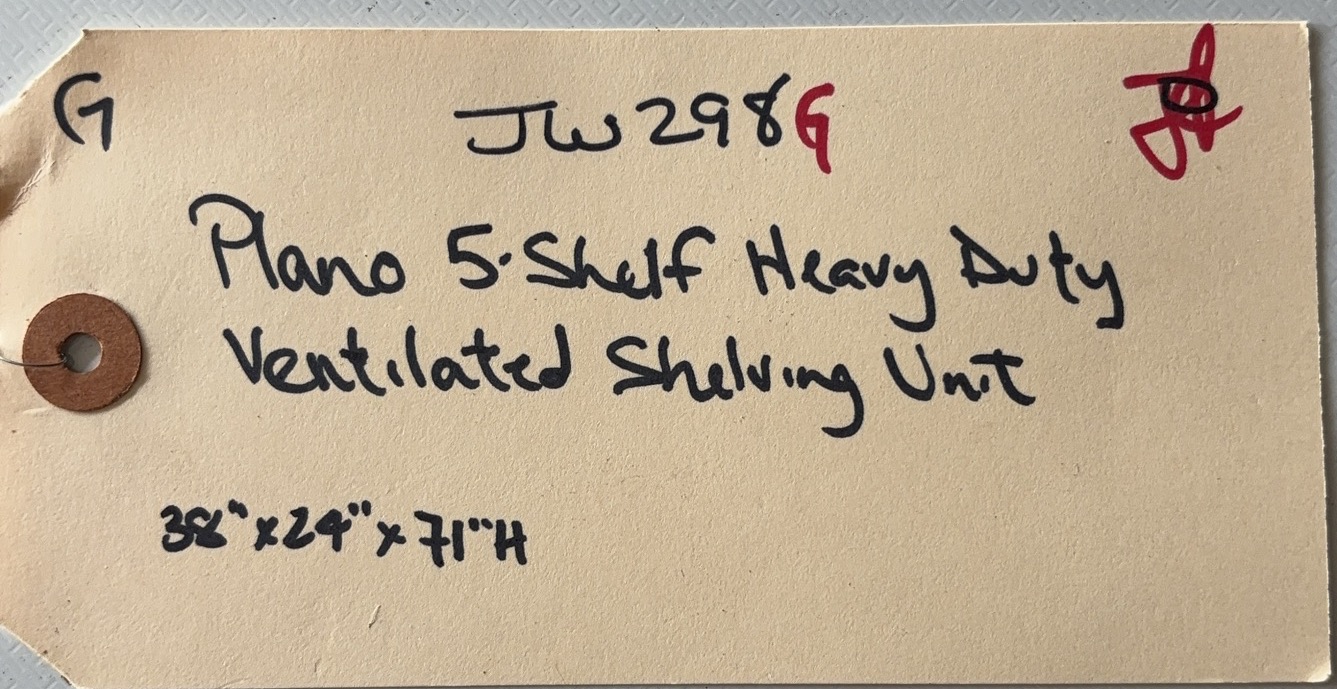 G
JW298G
Plano 5-Shelf Heavy Duty
Ventilated Shelving Unit
38"x24"x71"H